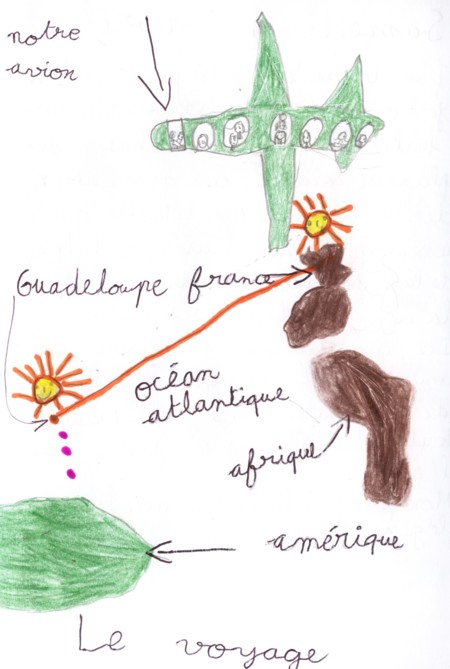 notre
avion
Guadeloupe france
océan
atlantique
afrique
amérique
Le voyage